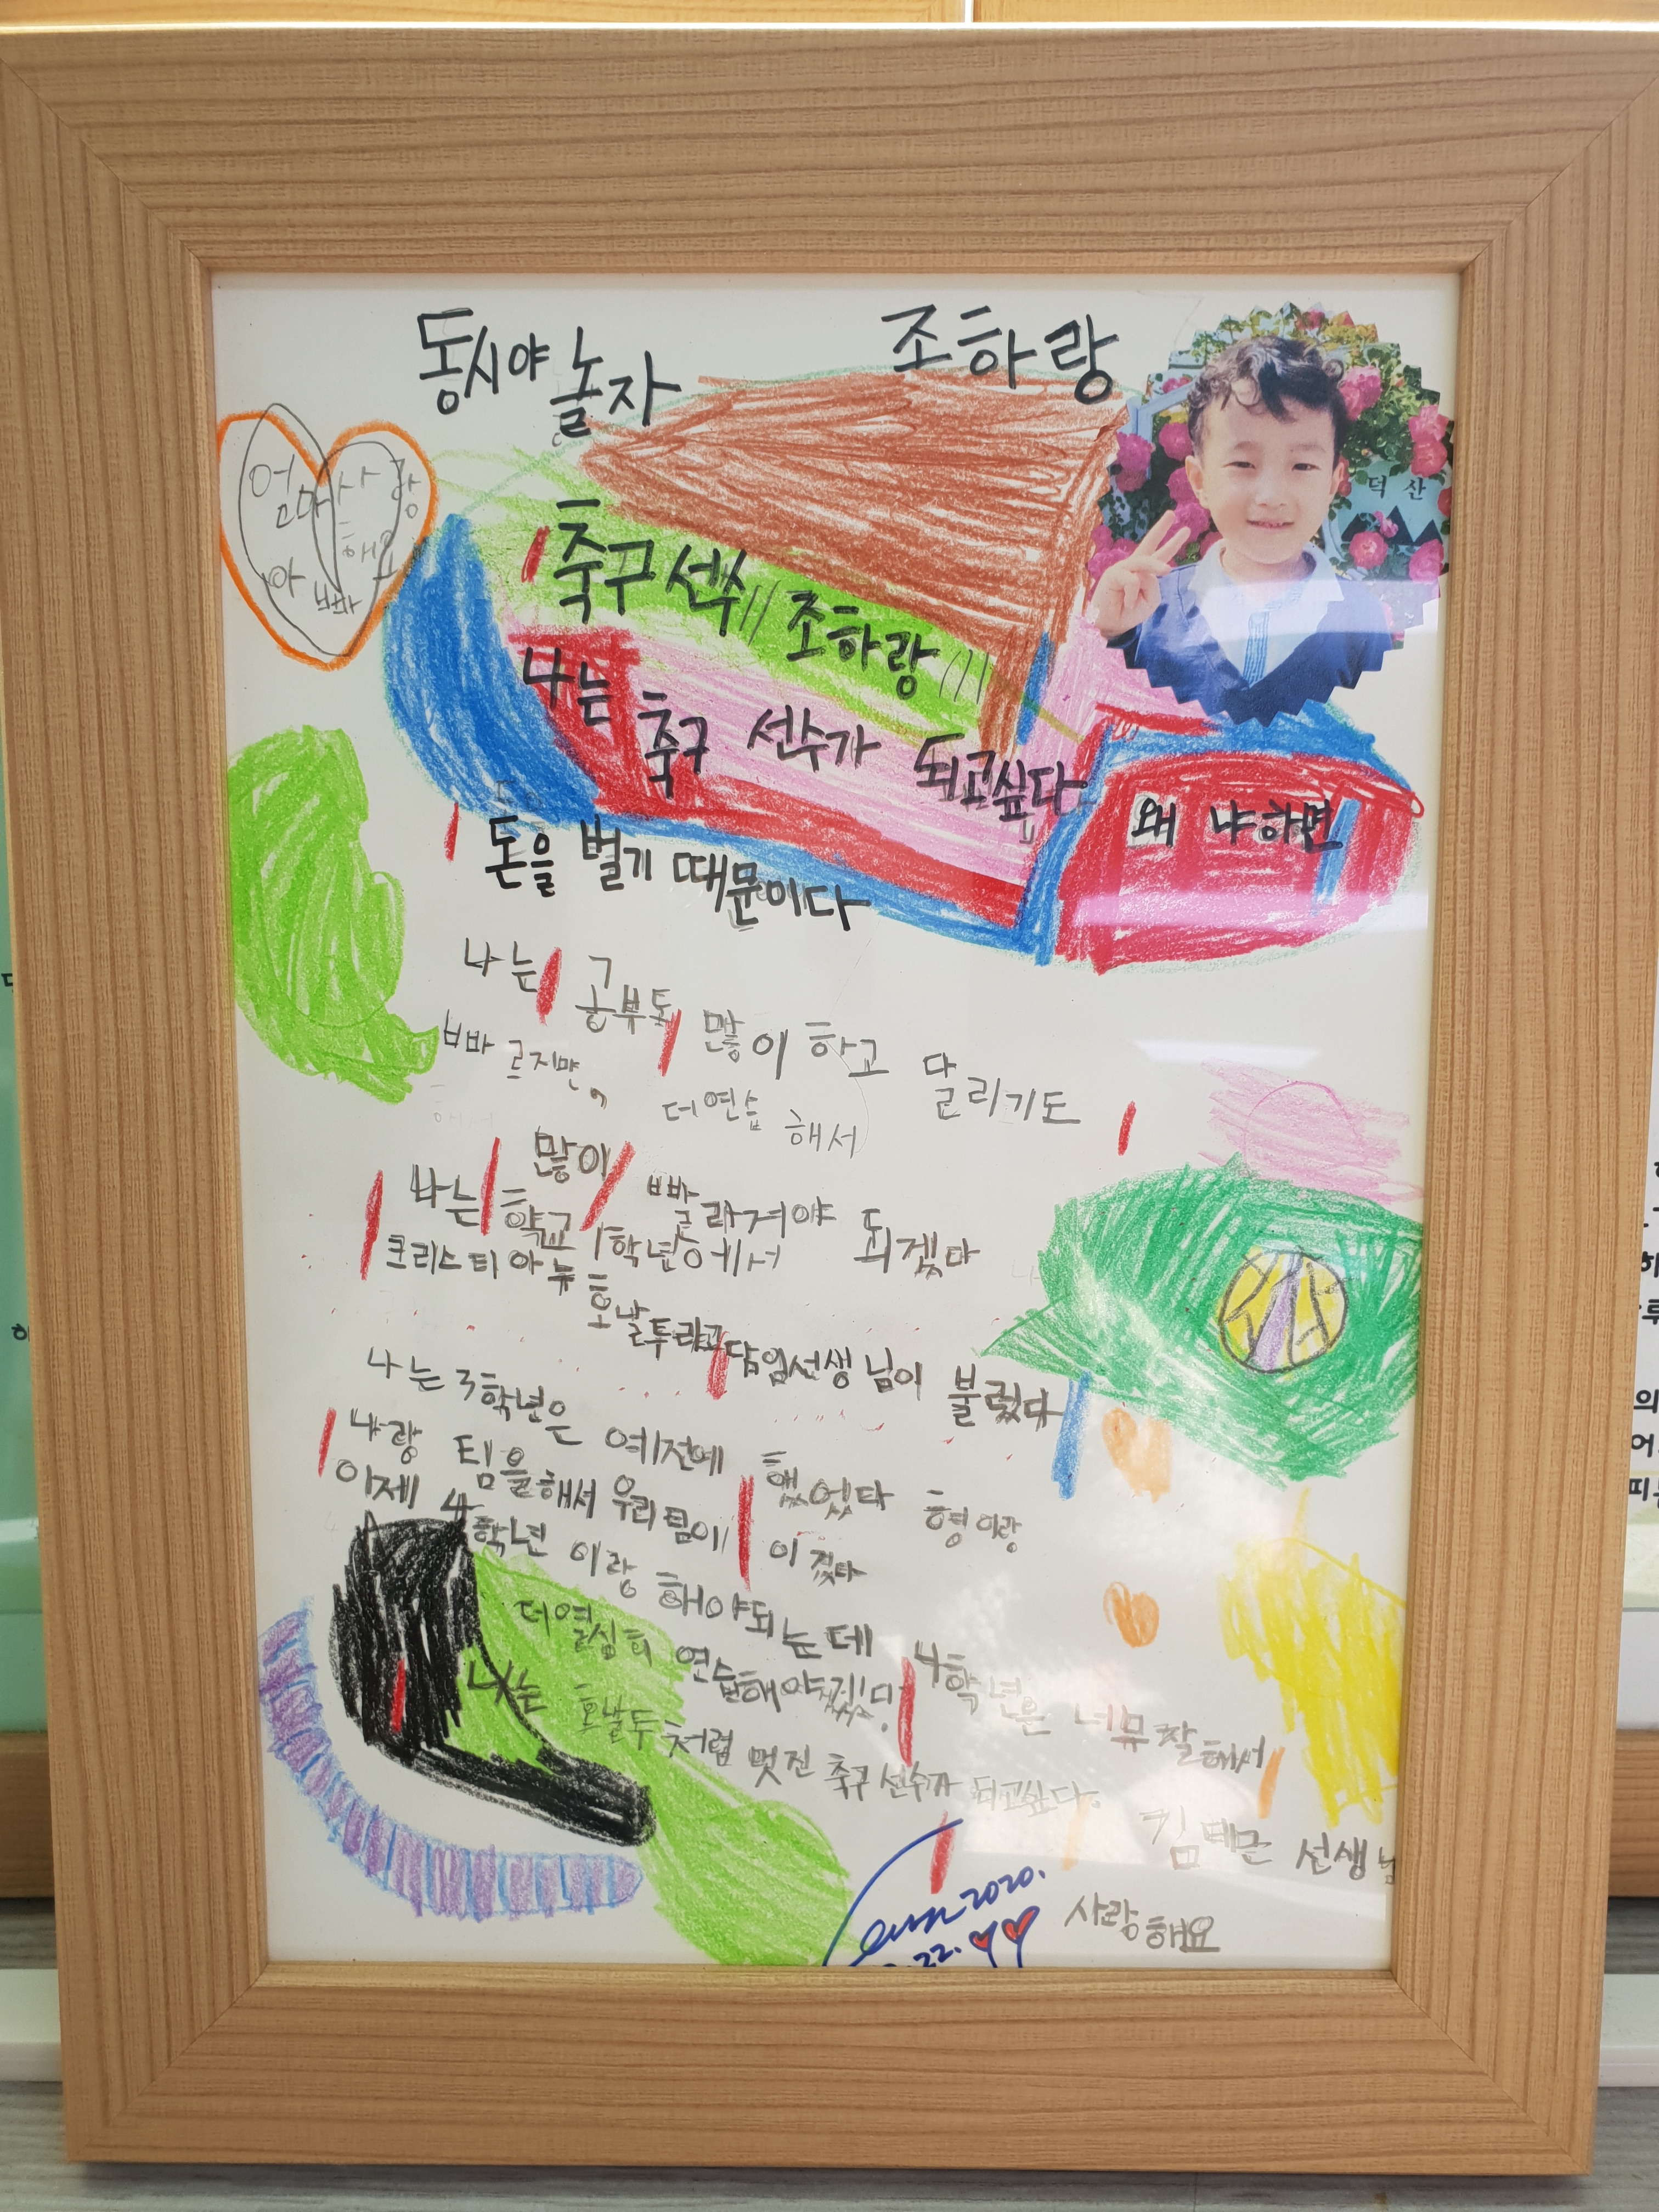 동시야 놀자
조하랑
덕산
엄마 사랑
아빠 해요
축구선수 조하랑
나는 축구 선수가 되고싶다
왜냐하면
돈을 벌기 때문이다
나는 공부도 많이 하고 달리기도
빠르지만, 더 연습 해서
많이 빨라져야 되겠다
나는 학교 1학년에서
크리스티아누 호날두라고 담임선생님이 불렀다
나는 3학년은 예전에 했었다 형이랑
나랑 팀을해서 우리팀이 이겼다
이제 4학년이랑 해야되는데 4학년은 너무 잘해서
더 열심히 연습해야겠다!
나는 호날두처럼 멋진 축구선수가 되고싶다.
선생님
사랑해요
2020.
22.